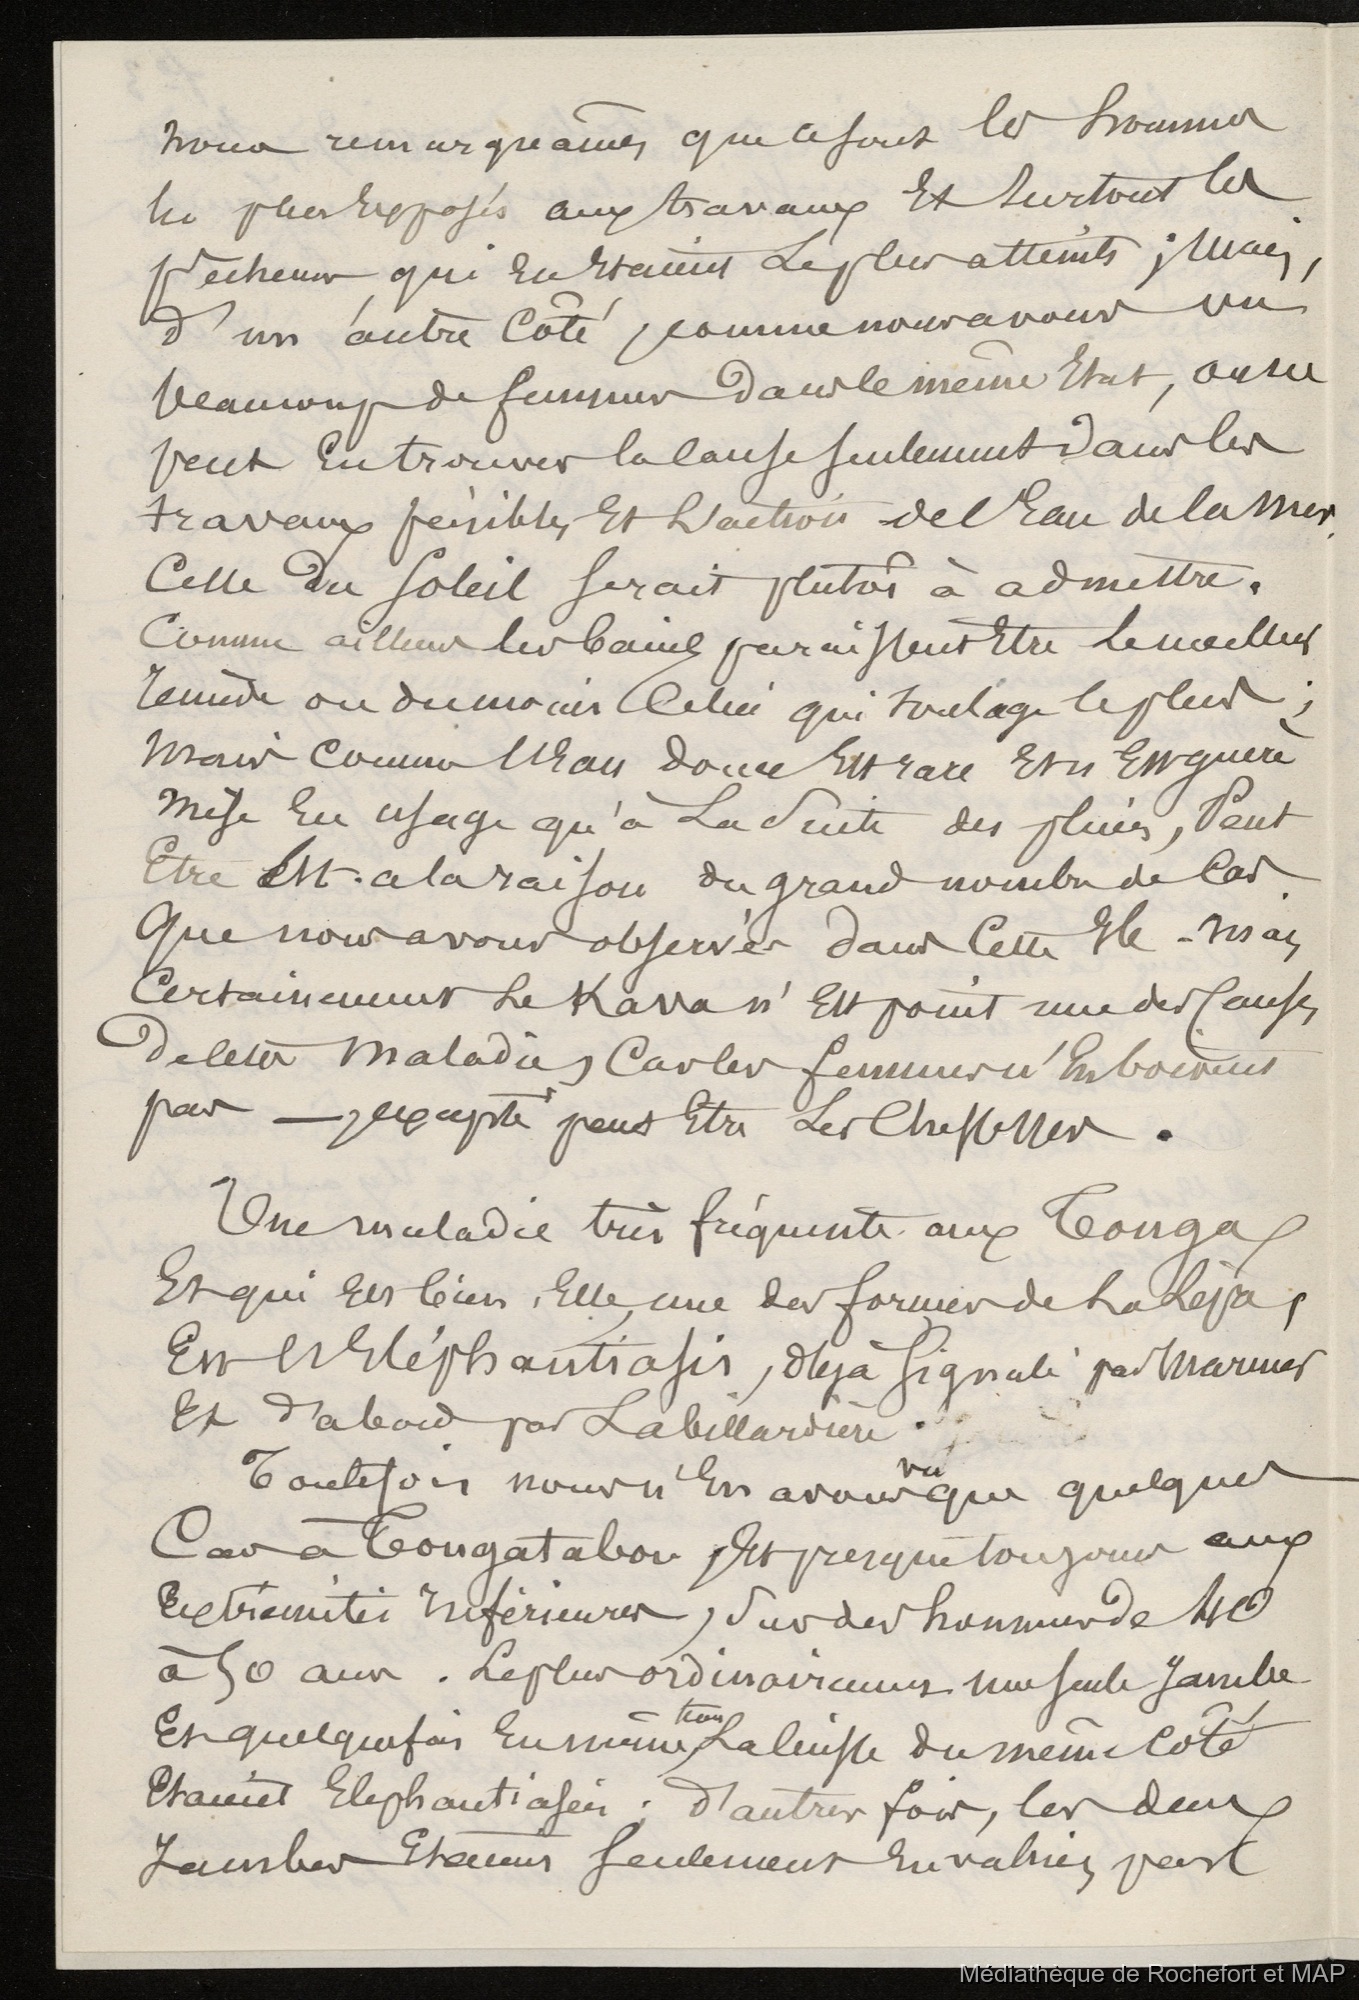 nous remarquâmes que ce sont les hommes
les plus Exposés aux travaux Et surtout les
pêcheurs qui En Etaient Le plus atteints ; Mais,
d'un autre Côté, comme nous avons vu
beaucoup de femmes Dans le même Etat, on ne
peut En trouver la Cause seulement Dans les
travaux pénibles Et L'action de l'Eau de la Mer.
Celle Du Soleil serait plutôt à admettre.
Comme ailleurs les bains paraissent Etre Le meilleur
remède ou du moins Celui qui soulage le plus ;
Mais Comme l'Eau Douce Est rare Et n'Est guère
mise En usage qu'à La Suite des pluies, Peut
Etre Est-a la raison du grand nombre de Cas
Que nous avons observés dans Cette Ile - Mais
Certainement Le Kava n'Est point une des Causes
De cette Maladie, Car les femmes n'En boivent
pas —, excepté peut Etre Les Cheffesses.
Une maladie très fréquente aux Tonga
Et qui Est bien, Elle, une des formes de La Lèpre,
Est l'Eléphantiasis, déjà Signalé par Mariner
Et d'abord par Labillardière.
Toutefois nous n'En avons vu que quelques
Cas à Tongatabou, Et presque toujours aux
Extrémités Inférieures, Sur des hommes De 40
à 50 ans. Le plus ordinairement une seule Jambe
Et quelquefois En même tems La Cuisse du même Côté
Etaient Elephantiasées ; d'autres fois, les deux
Jambes Etaient seulement Envahies par